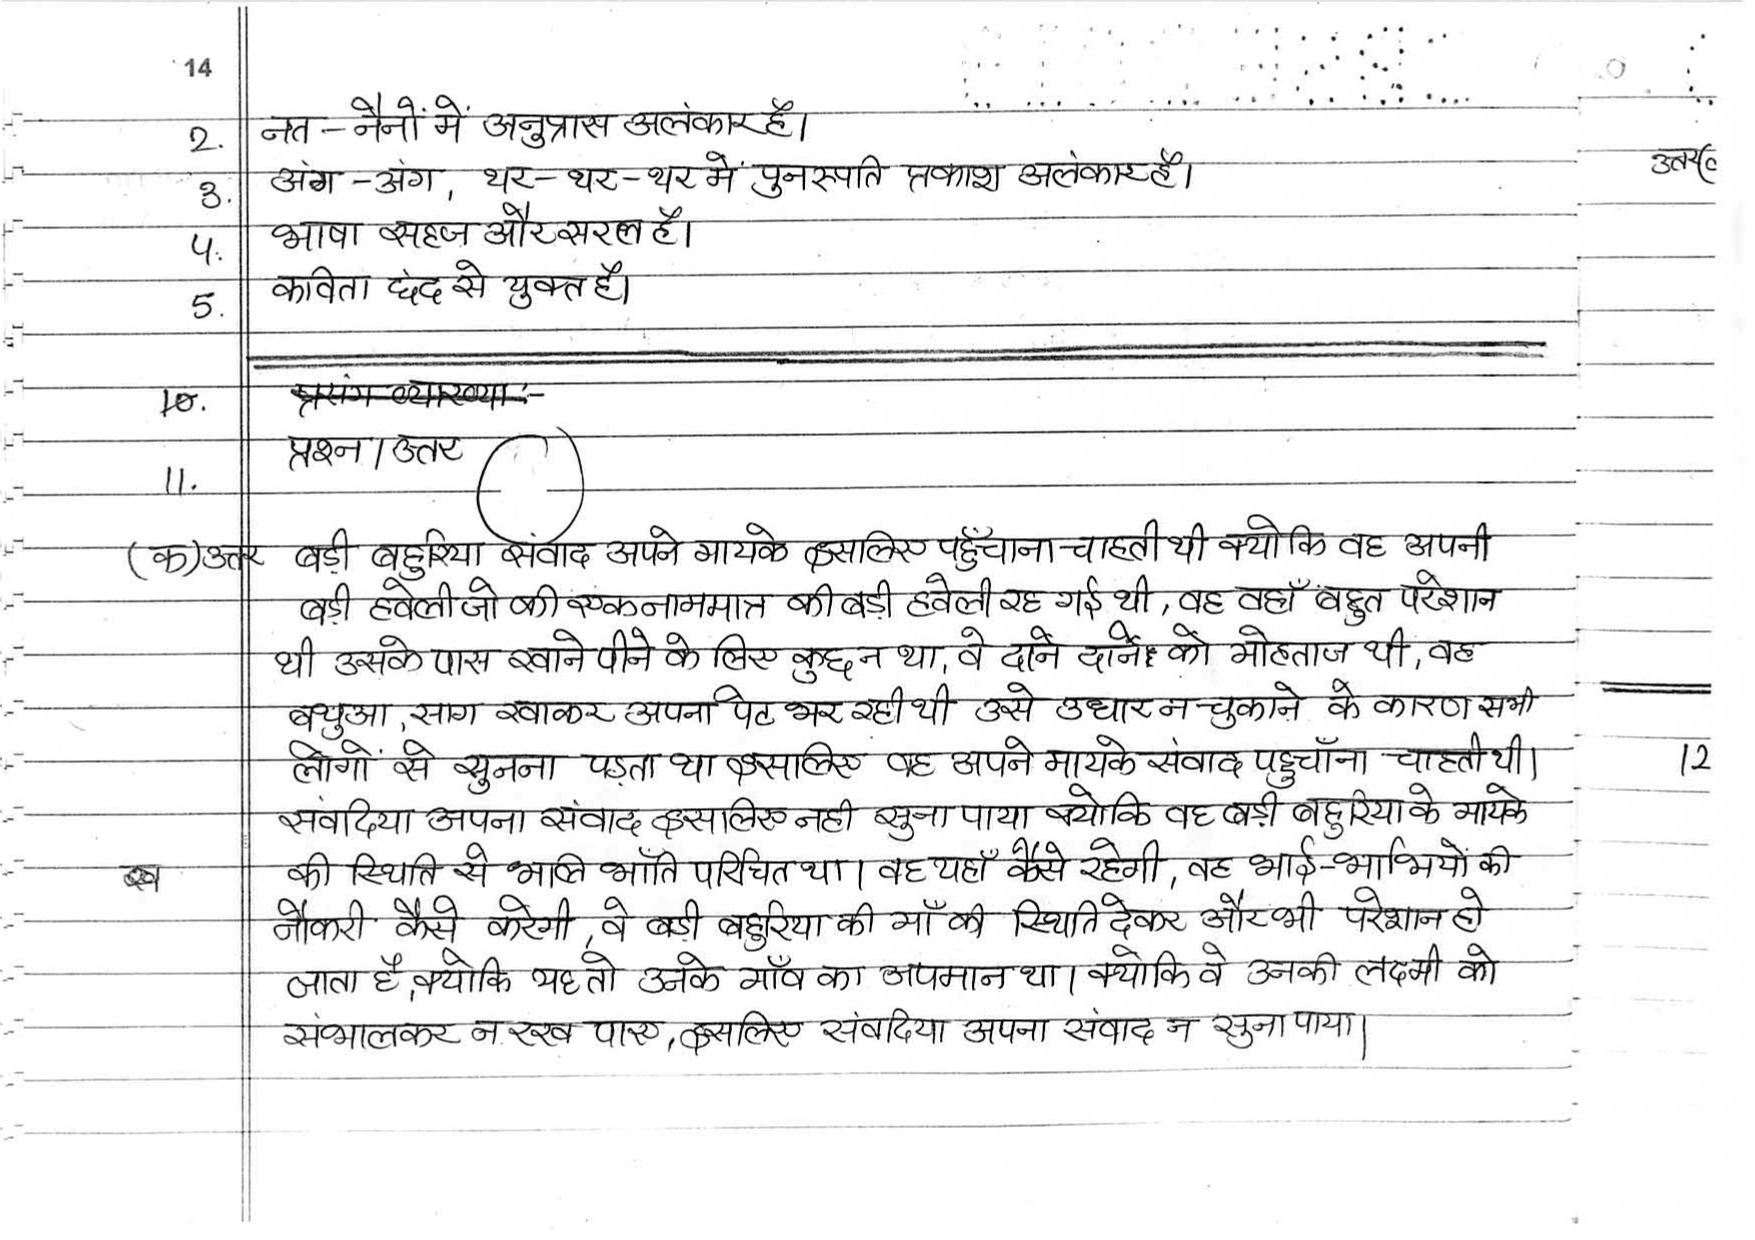 14
2. नत - नैनों में अनुप्रास अलंकार है।
3. अंग - अंग, थर - थर - थर में पुनरुपति प्रकाश अलंकार है।
4. भाषा सहज और सरल है।
5. कविता छंद से युक्त है।
10. प्रसंग व्याख्या :-
11. प्रश्न / उतर
(क) उतर बड़ी बहुरिया संवाद अपने मायके इसलिए पहुँचाना चाहती थी क्योकि वह अपनी
बड़ी हवेली जो की एक नाममात्र की बड़ी हवेली रह गई थी, वह वहाँ बहुत परेशान
थी उसके पास खाने पीने के लिए कुछ न था, वे दाने दाने को मोहताज थी, वह
बथुआ, साग खाकर अपना पेट भर रही थी उसे उधार न चुकाने के कारण सभी
लोगों से सुनना पड़ता था इसलिए वह अपने मायके संवाद पहुचाँना चाहती थी।
संवदिया अपना संवाद इसलिए नही सुना पाया क्योकि वह बड़ी बहुरिया के मायके
ख की स्थिति से भालि भाँति परिचित था। वह यहाँ कैसे रहेगी, वह भाई-भाभियों की
नौकरी कैसे करेगी, वे बड़ी बहुरिया की माँ की स्थिति देकर और भी परेशान हो
जाता है, क्योकि यह तो उनके गाँव का अपमान था। क्योकि वे उनकी लक्ष्मी को
संभालकर न रख पाए, इसलिए संवदिया अपना संवाद न सुना पाया।
12